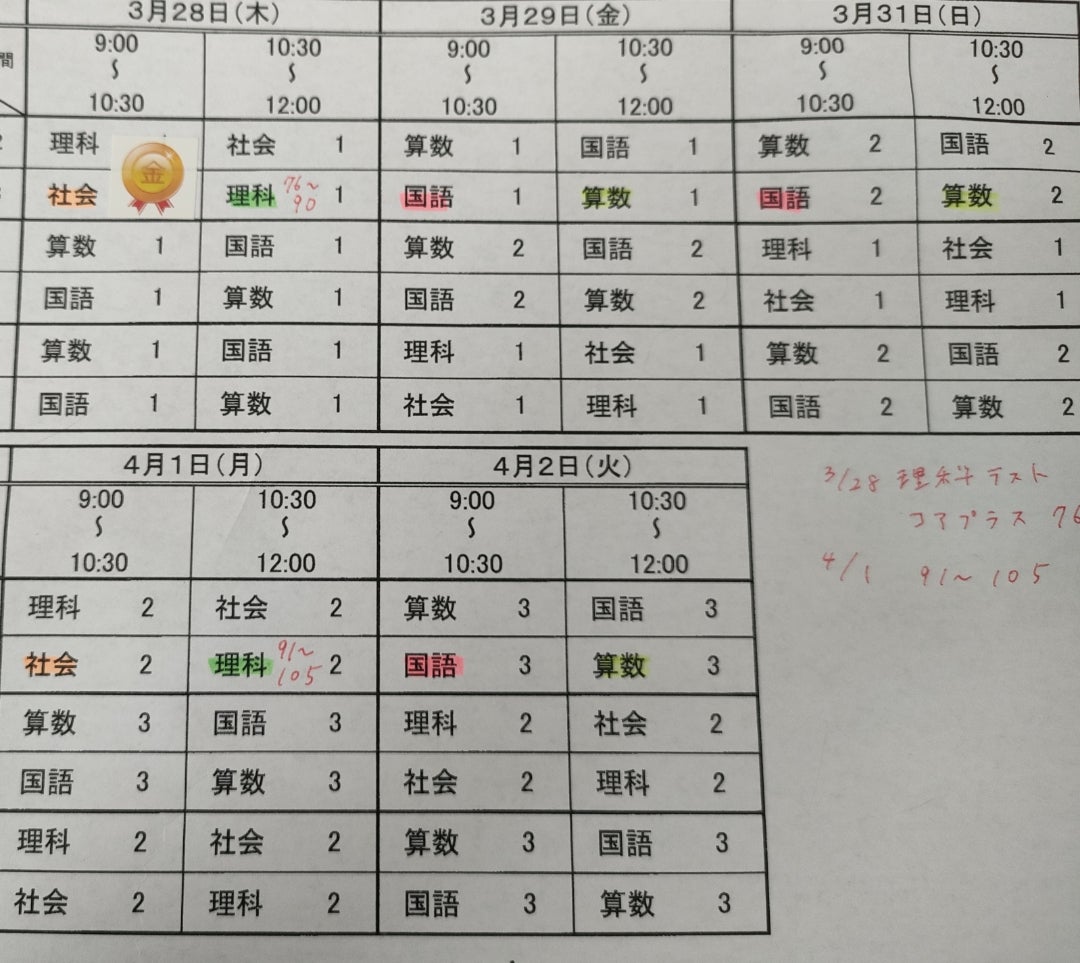 3月28日(木) 3月29日(金) 3月31日(日)
間 9:00 〜 10:30 10:30 〜 12:00 9:00 〜 10:30 10:30 〜 12:00 9:00 〜 10:30 10:30 〜 12:00
理科 金 社会 1 算数 1 国語 1 算数 2 国語 2
社会 理科 76〜90 1 国語 1 算数 1 国語 2 算数 2
算数 1 国語 1 算数 2 国語 2 理科 1 社会 1
国語 1 算数 1 国語 2 算数 2 社会 1 理科 1
算数 1 国語 1 理科 1 社会 1 算数 2 国語 2
国語 1 算数 1 社会 1 理科 1 国語 2 算数 2
4月1日(月) 4月2日(火)
9:00 〜 10:30 10:30 〜 12:00 9:00 〜 10:30 10:30 〜 12:00
理科 2 社会 2 算数 3 国語 3
社会 2 理科 91〜105 2 国語 3 算数 3
算数 3 国語 3 理科 2 社会 2
国語 3 算数 3 社会 2 理科 2
理科 2 社会 2 算数 3 国語 3
社会 2 理科 2 国語 3 算数 3
3/28 理科テスト
コアプラス 76
4/1 91〜105